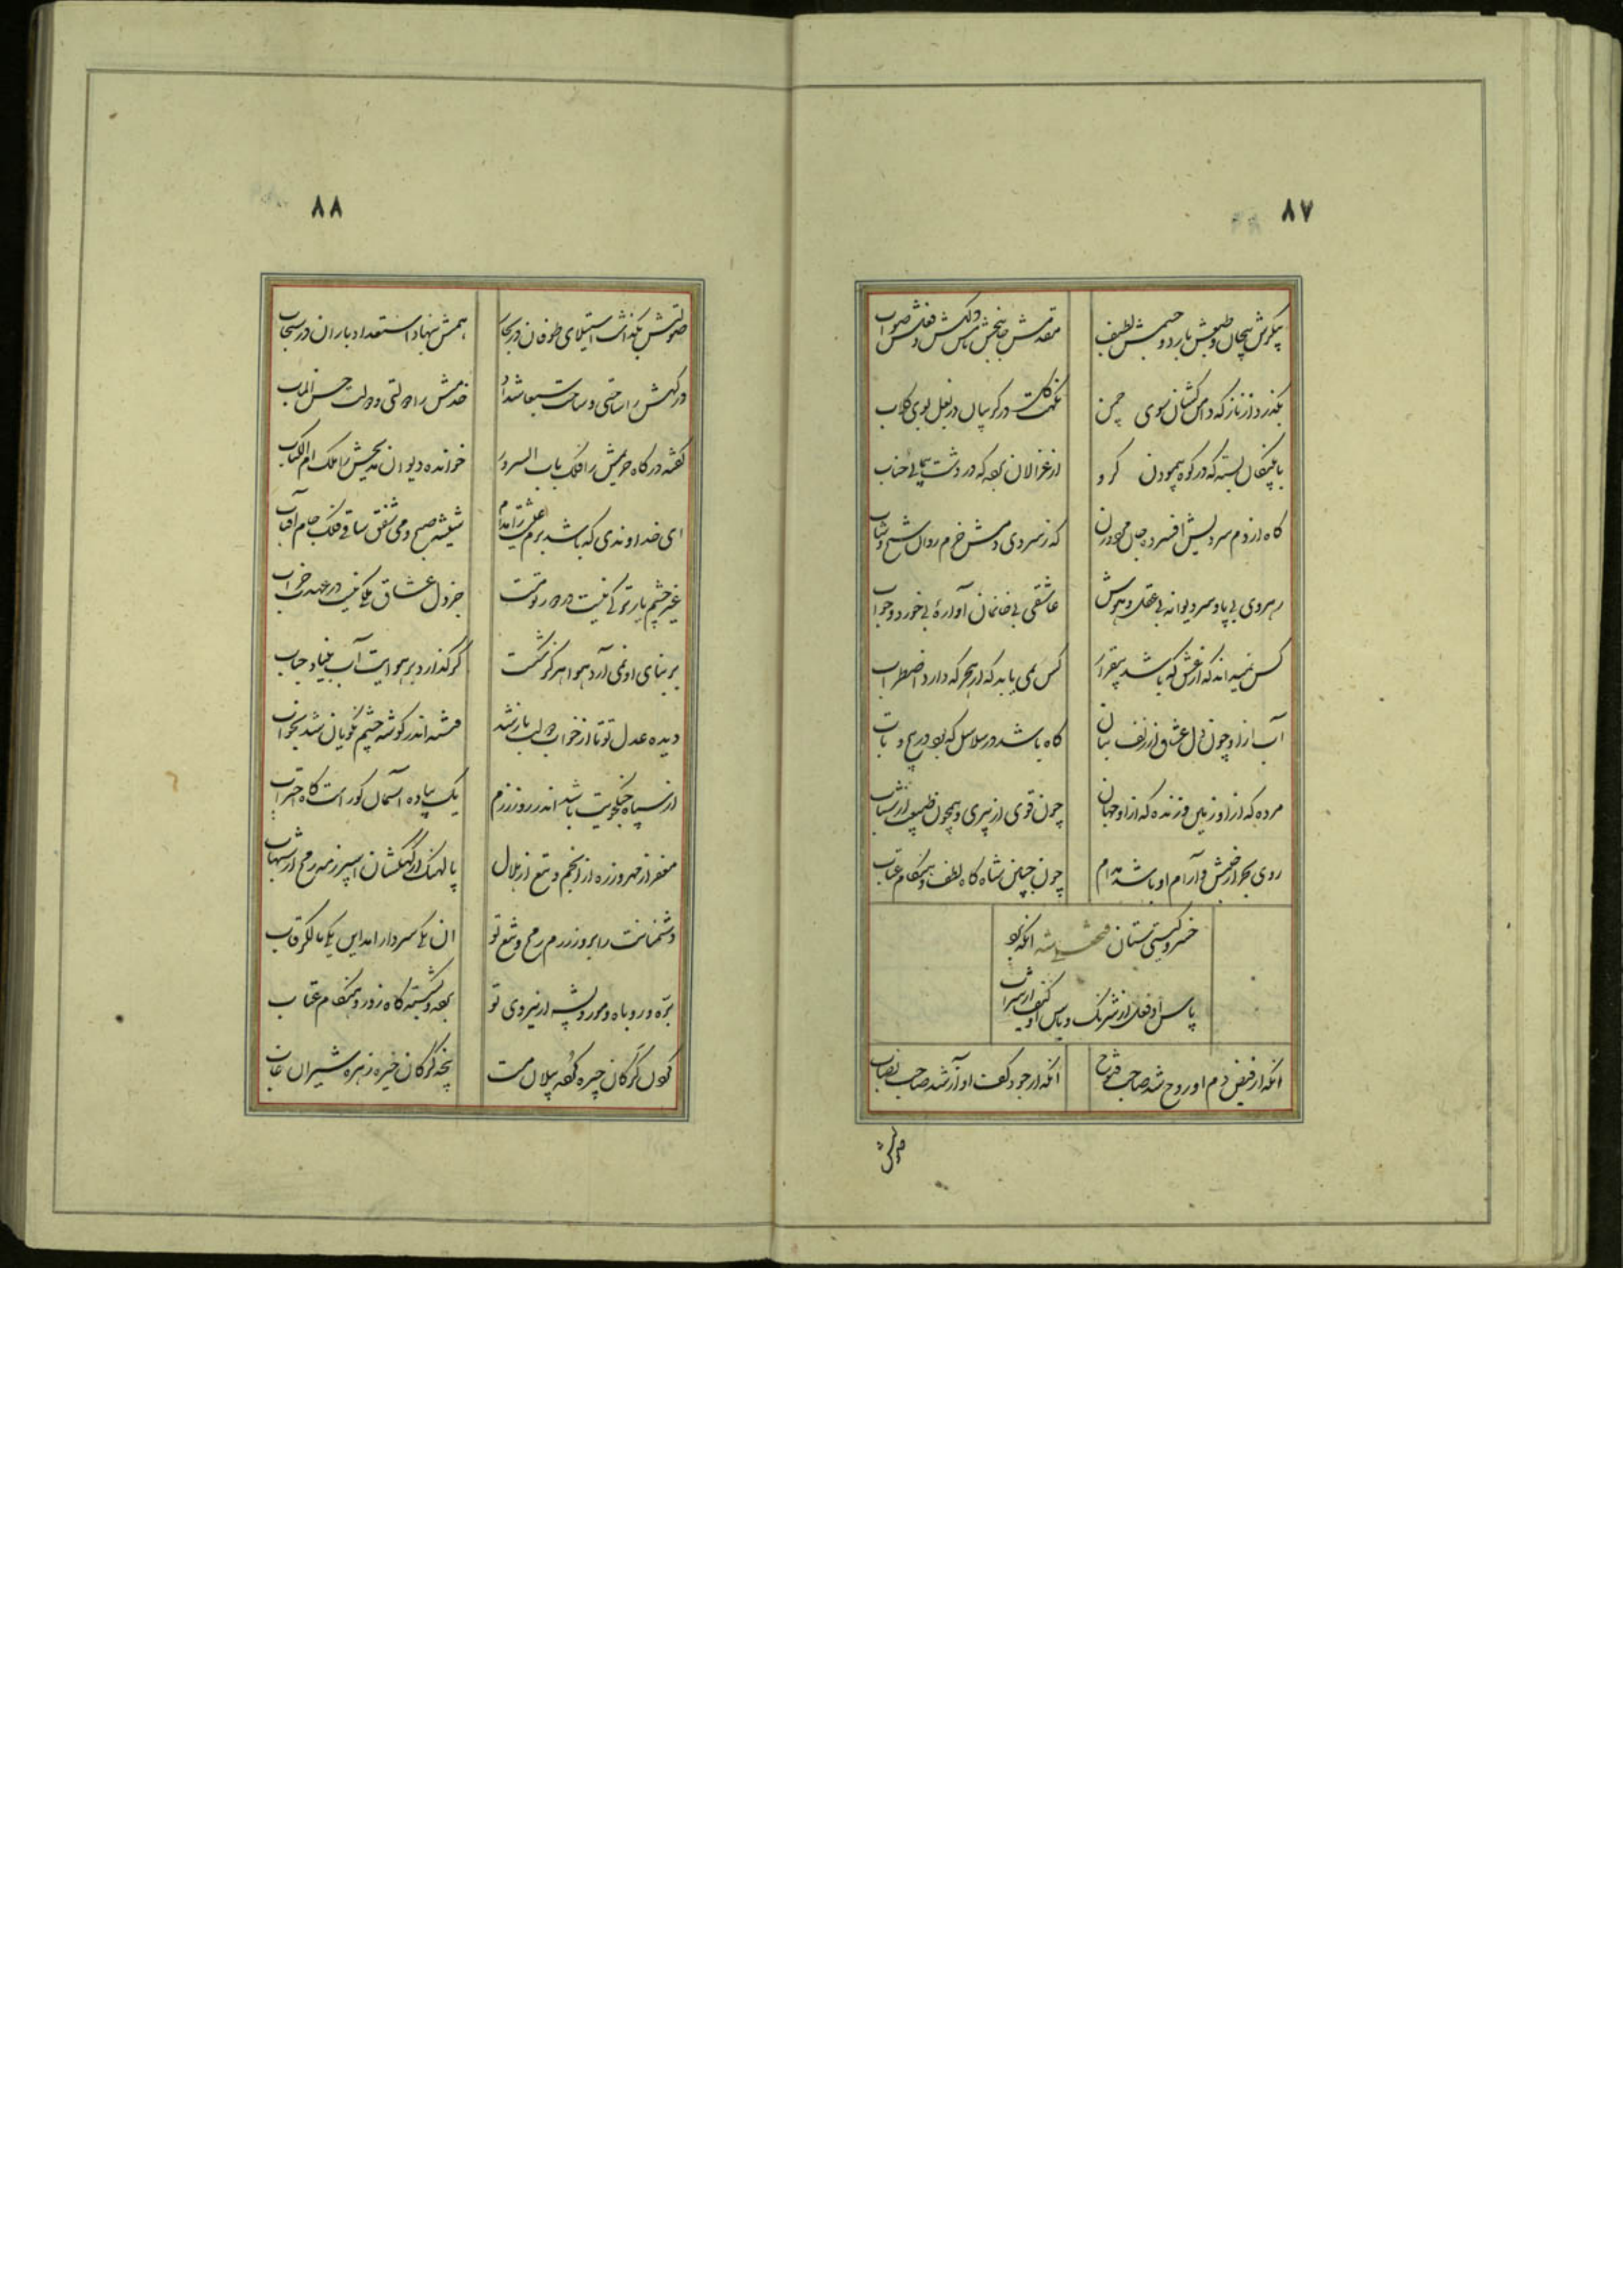 ۸۷
پیکرش بیجان و طبعش بارد و جسمش لطیف
مقدمش جانبخش و دلکش فعلش صواب
بگذرد از ناز که دامن کشان سوی چمن
نکهت گلت در گریبان در بغل بوی گلاب
با پلنگان بسته که در کوه پیمودن گرو
از غزالان بوده که در دشت پیمائی جناب
گاه از دم سردیش افسرده جان
که ز سردی دمش خرم روان شیخ و شاب
رهروی بی پا و سر دیوانه بی عقل و هوش
عاشقی بی خانمان آوارهٔ بی خورد و خواب
کس نمیداند که از عشق که باشد بیقرار
کس نمی یابد که از هجر که دارد اضطراب
آب از او چون دل عشاق از زلف بتان
گاه باشد در سلاسل که بود در پیچ و تاب
مرده که از او زمین و زنده که از او جهان
چون قوی از پیری و همچون ضعیف از شباب
روی بحر از جنبش و آرام او باشد مدام
چون جبین شاه گاه لطف و هنگام عتاب
خسرو گیتی ستان فتحعلیشه آنکه بود
پاس او فعل از شرنگ و باس او کیف از شراب
آنکه از فیض دم او روح شد صاحب فتوح
آنکه از جود کف او آز شد صاحب نصاب
صولتش
۸۸
صولتش بگذاشت استیلای طوفان در بحار
همتش بنهاد استعداد باران در سحاب
درگهش را ساحتی و ساحت سبعا شداد
خدمتش را دولتی و دولت حسن المآب
گفته درگاه حریمش را فلک باب السرور
خوانده دیوان مدیحش را ملک ام الکتاب
ای خداوندی که باشد بزم عیشت را مدام
شیشه صبح و می شفق ساقی فلک جام آفتاب
غیر چشم یار ترکی نیست در دور تو مست
جز دل عشاق ملکی نیست در عهدت خراب
بر بنای او نمی آرد هوا هرگز شکست
گر گذارد بر هوایت آب بنیاد حباب
دیده عدل تو تا از خواب دولت باز شد
فتنه اندر گوشه چشم نکویان شد بخواب
از سپاه جنگجویت باشد اندر روز رزم
یک پیاده آسمان کور است گاه احتراب
مغفر از مهر و زره از انجم و تیغ از هلال
پالهنگ از کهکشان اسپر ز مه رمح از شهاب
دشمنانت را بروز رزم رمح و تیغ تو
آن یکی سردار آمد این یکی مالک رقاب
بره و روباه و مور و پشه از نیروی تو
بوده و گشته گاه زور و هنگام عتاب
گون گرگان چیره گفه پیلان مست
پنجه گرگان خیره زهره شیران غاب